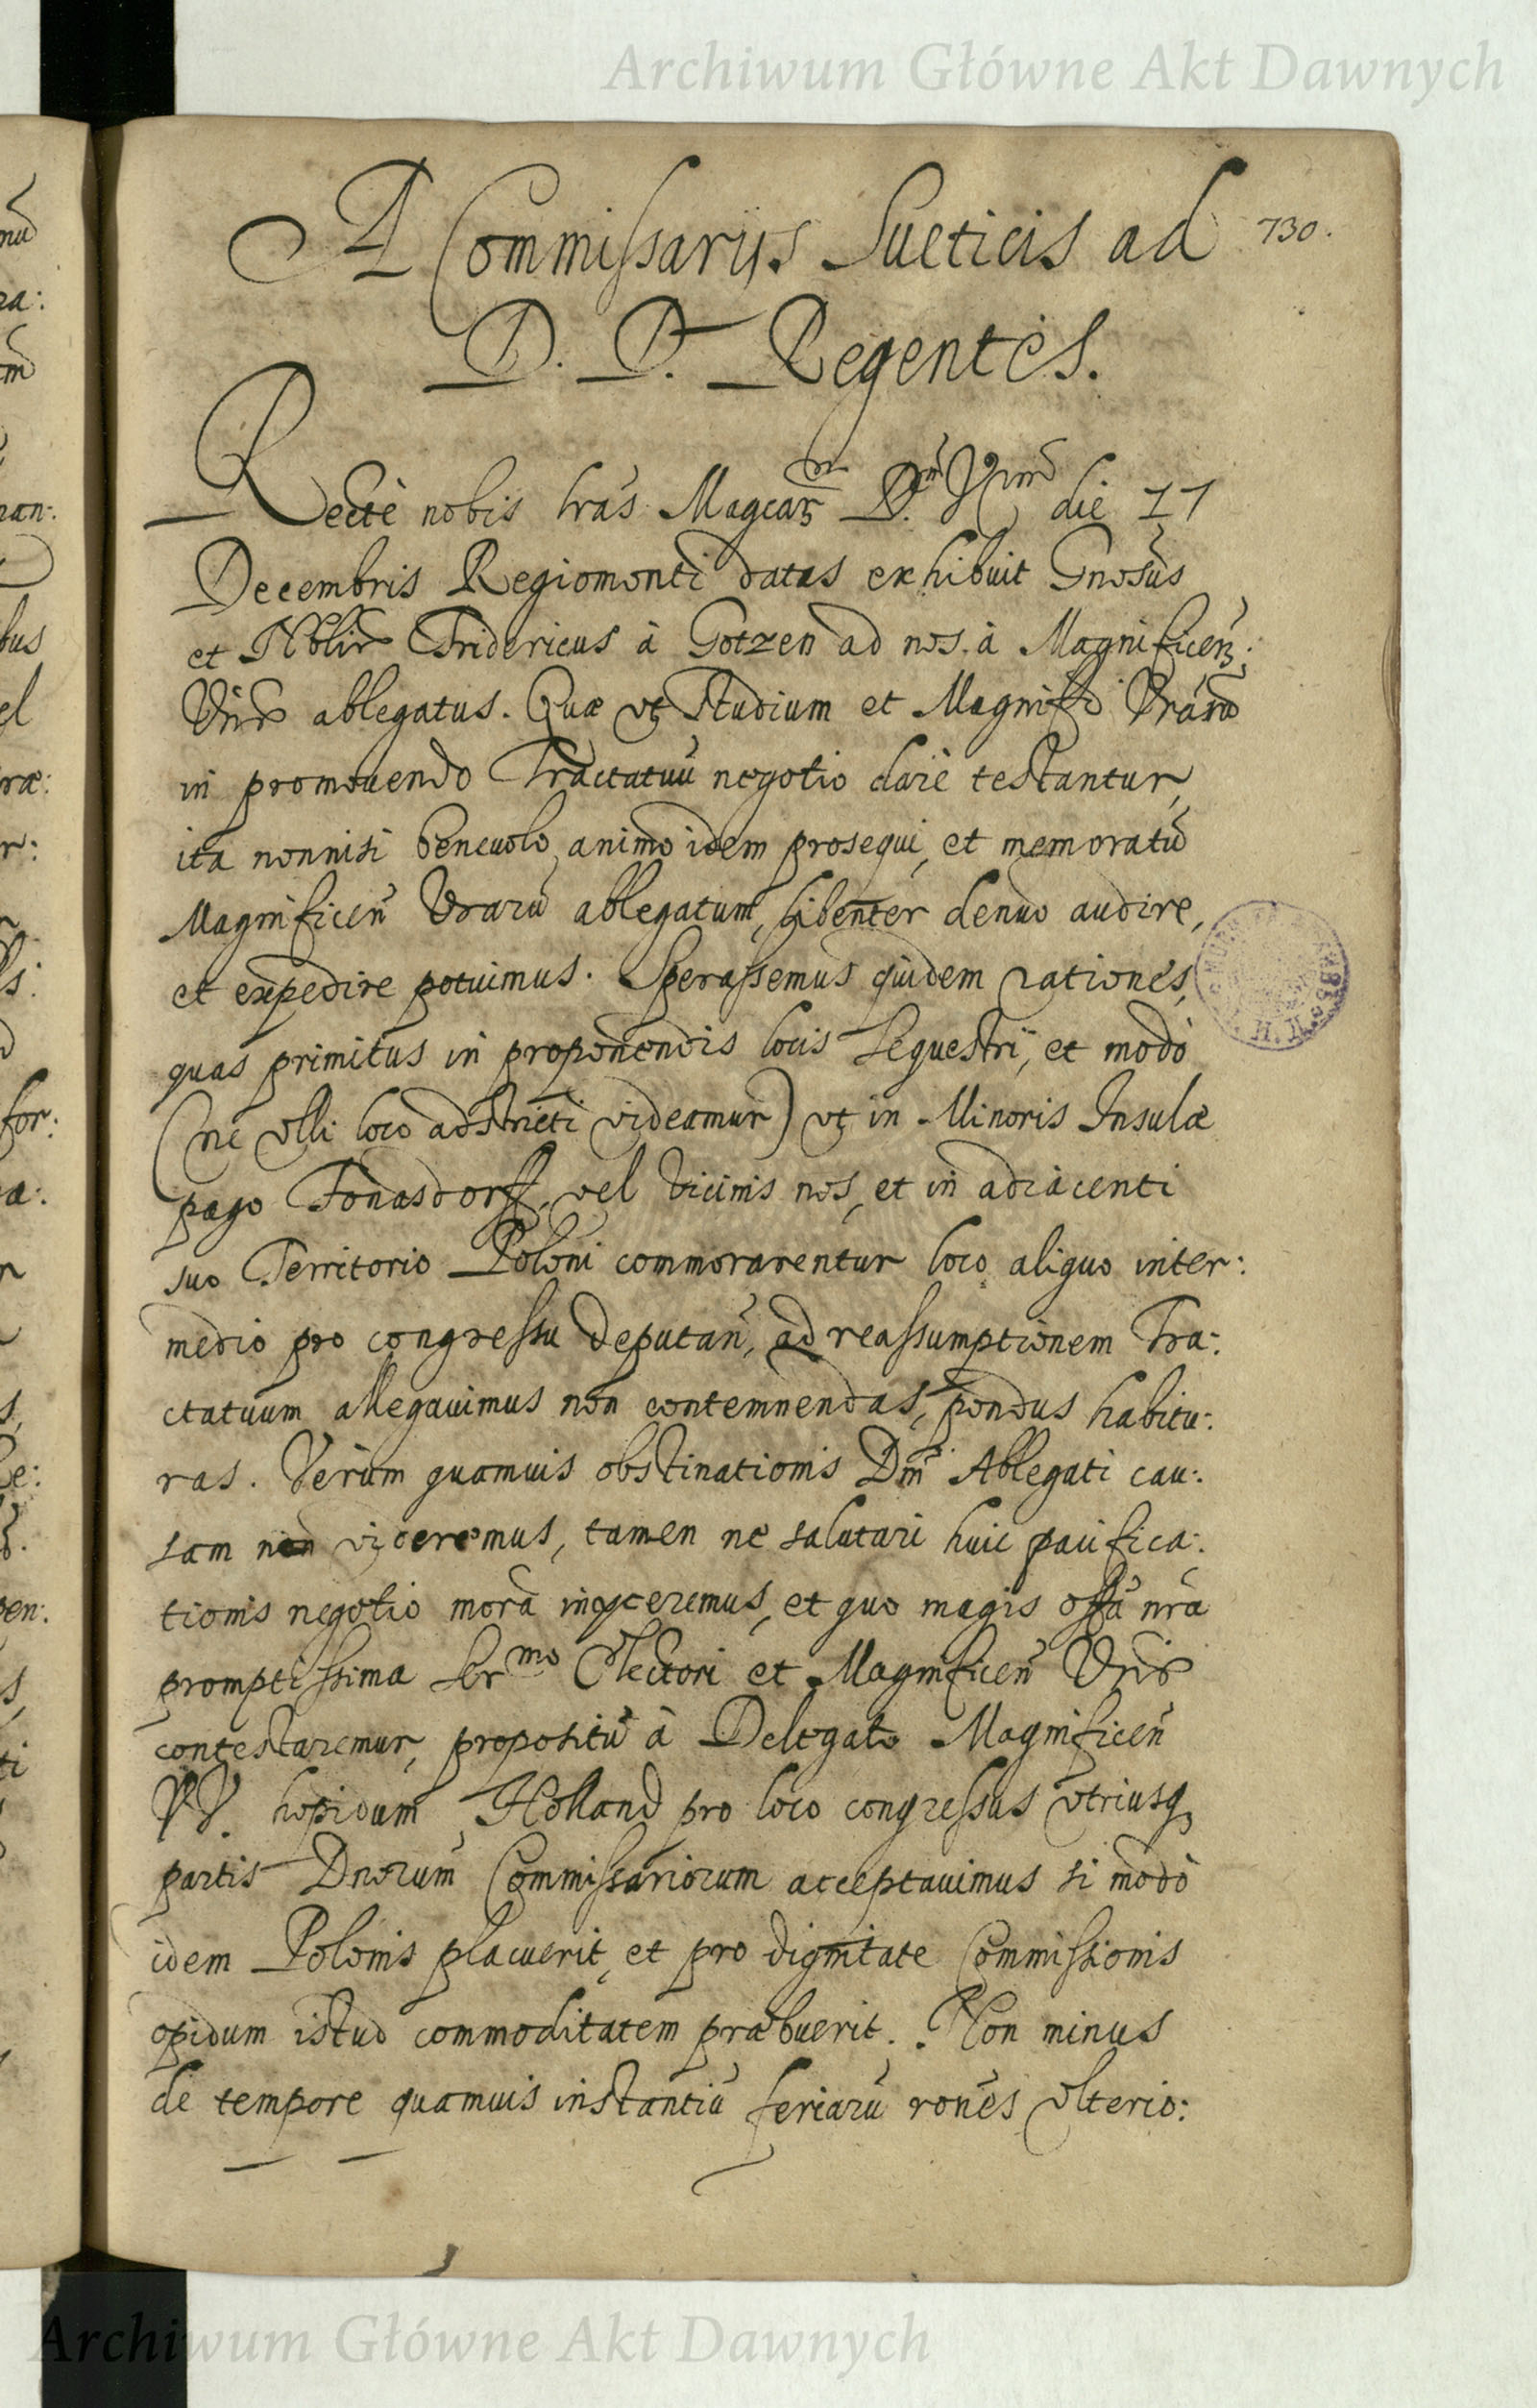 Archiwum Główne Akt Dawnych
A Commissarijs Sueticis ad
730.
D. D. Regentes.
Rectè nobis lrãs Magcar̃ D. die 17
Decembris Regiomonti datas exhibuit Gnosus
et Nobiľ Fridericus à Gotzen ad nos à Magnificen;
Vris ablegatus. Quæ ut studium et Magnifi Vrarũ
in promouendo Tractatuũ negotio clarè testantur,
ita nonnisi beneuolo animo idem prosequi, et memoratũ
Magnificen̄ Vrarũ ablegatum, libenter denuo audire,
et expedire potuimus. Sperassemus quidem rationes,
quas primitus in proponendis locis sequestrij, et modò
(ne ulli loco adstricti videamur) ut in Minoris Insulæ
pago Jonasdorff, vel vicinis nos, et in adiacenti
suo Territorio Poloni commorarentur loco aliquo inter:
medio pro congressu deputañ, ad reassumptionem Tra:
ctatuum allegauimus non contemnendas, pondus habitu:
ras. Verùm quamuis obstinationis Dñi Ablegati cau:
sam non videremus, tamen ne salutari huic pacifica:
tionis negotio morã injiceremus, et quo magis offã nrã
promptissima Ser^mo Electori et Magnificen̄ Vris
contestaremur, propositũ à Delegato Magnificen̄
VV. hopidum Holland pro loco congressus utriusq
partis Dnorum Commissariorum acceptauimus si modò
idem Polonis placuerit, et pro dignitate Commissionis
opidum istud commoditatem præbuerit. Non minus
de tempore quamuis instantiũ feriarũ rões ulterio:
Archiwum Główne Akt Dawnych